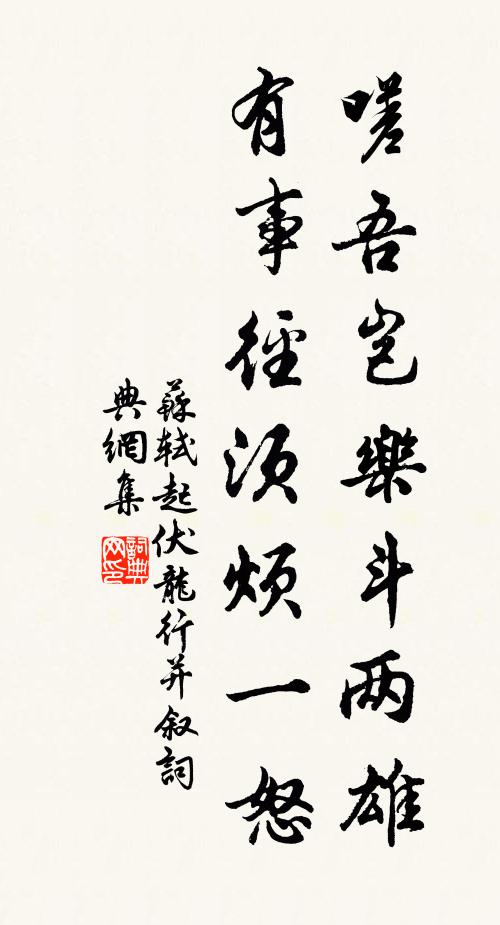 嗟吾豈樂斗两雄
有事徑須煩一怒
蘇軾起伏龍行并叙詞
典網集
詞典网印